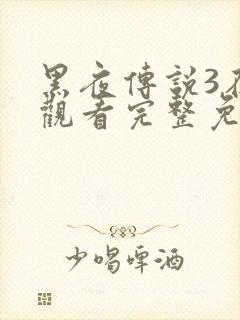 黑夜傳說3
觀看完整免
少喝啤酒